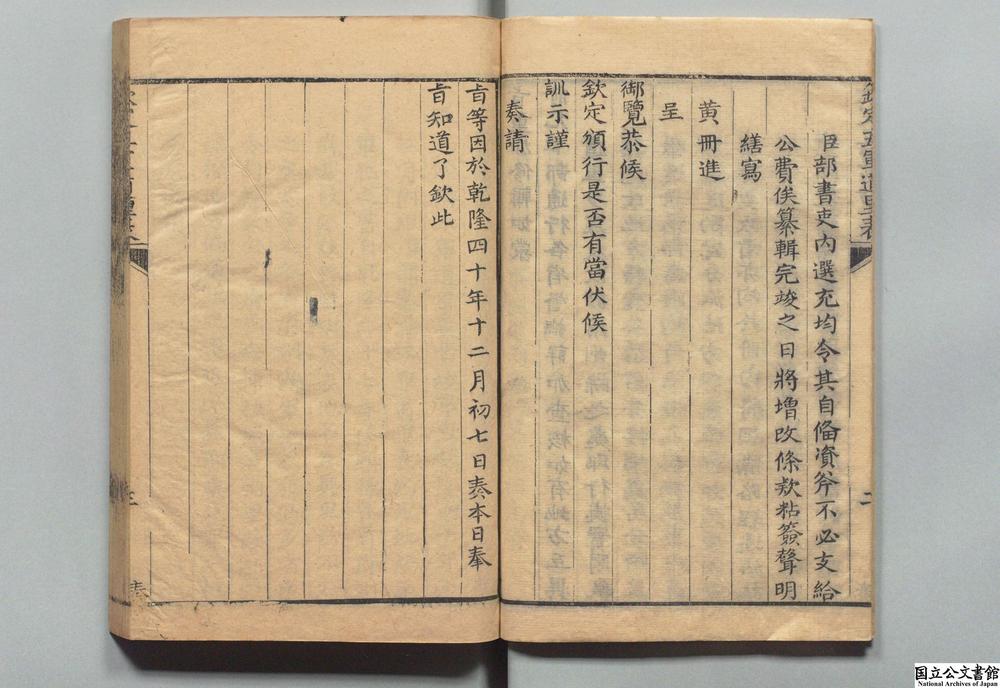 欽定五軍道里表
臣部書吏內選充均令其自備資斧不必支給
公費俟纂輯完竣之日將增改條款粘簽聲明
繕寫
黃冊進
呈
御覽恭候
欽定頒行是否有當伏候
訓示謹
奏請
旨等因於乾隆四十年十二月初七日奏本日奉
旨知道了欽此
国立公文書館
National Archives of Japan